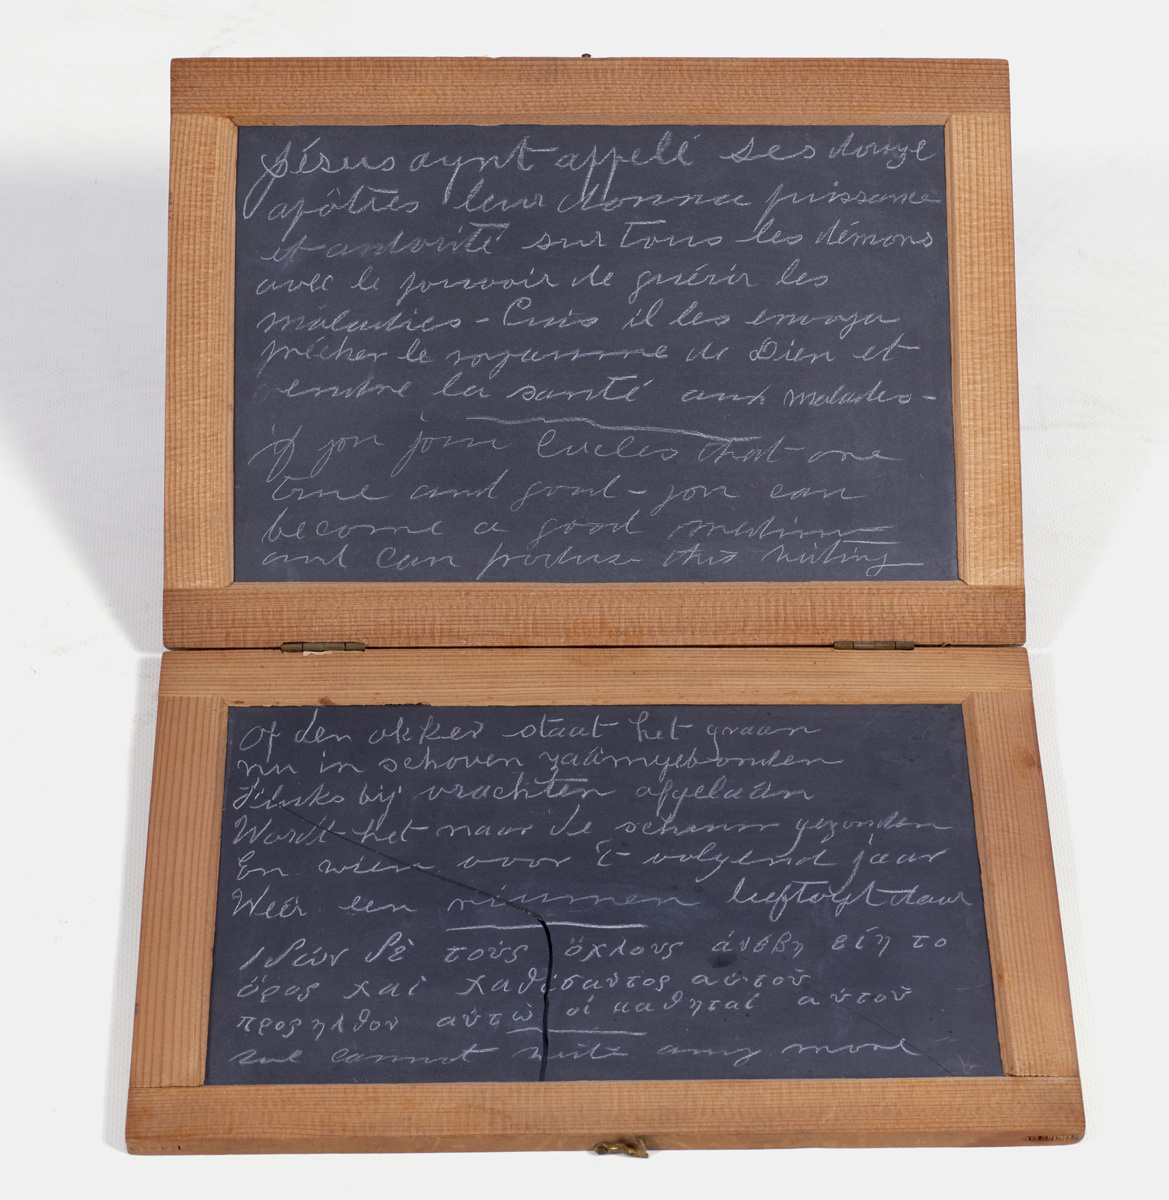 Jésus aynt appelé ses douze
apôtres leur donna puissance
et autorité sur tous les démons
avec le pouvoir de guérir les
maladies - Puis il les envoya
prêcher le royaume de Dieu et
rendre la santé aux malades -
if you join Circles that are
true and good - you can
become a good medium
and can produse this writing
Op den akker staat het graan
nu in schoven
bij vrachten afgelaân
Wordt het naar de schuur gezonden
En wien voor 't volgend jaar
Weêr een
ιδών δὲ τοὺς ὄχλους ἀνέβη είη το
ὄρος χαὶ χαθίσαντος αὐτοῦ
προςηλθον αὐτῷ οἱ μαθηταὶ αὐτοῦ
we cannot write any more